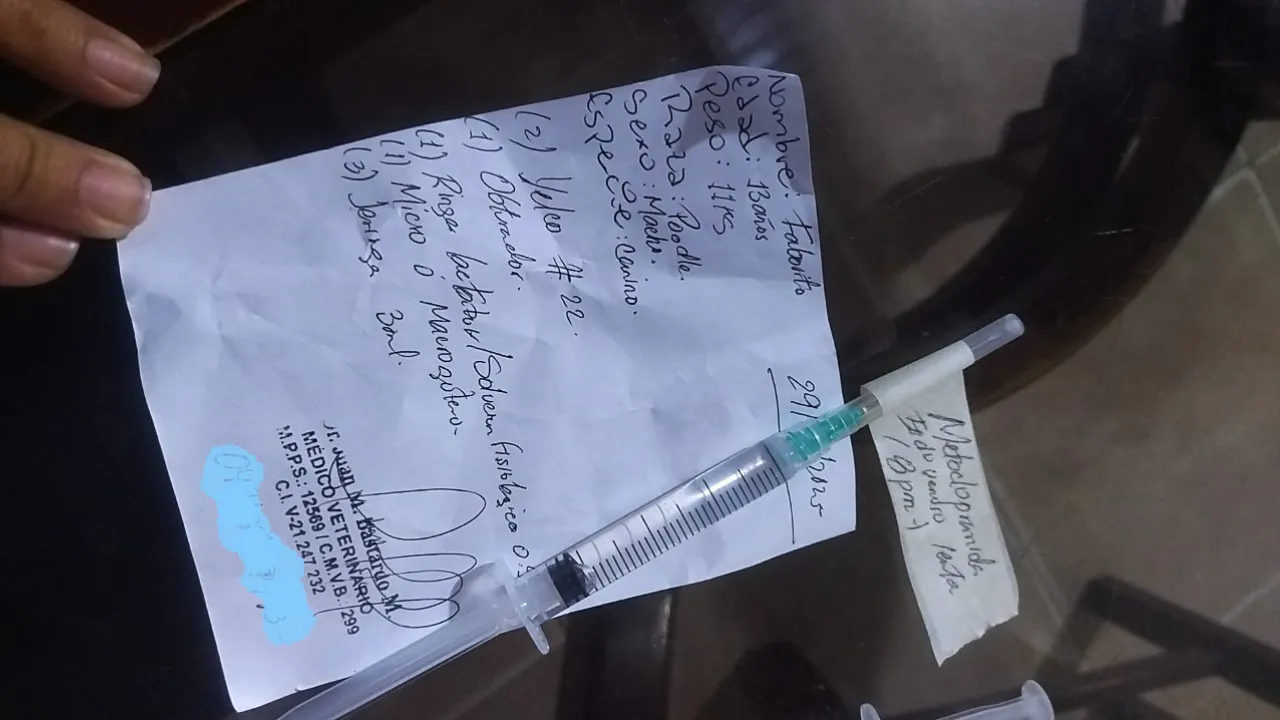 29/ /2025
Nombre: Faborito
Edad: 13 años
Peso: 11 KS
Raza: Poodle.
Sexo: Macho.
Especie: Canino.
(2) Yelco # 22.
(1) Obturador.
(1) Ringer lactator/Soluvern fisiologica 0.
(1) Micro o Macrogotero-
(3) Jeringa 3ml.
Dr. Juan M. Bastardo M
MÉDICO VETERINARIO
M.P.P.S.: 12569 / C.M.V.B.: 299
C.I. V-21.247.232
Metoclopramida
Endovenoso lenta
(8pm-)